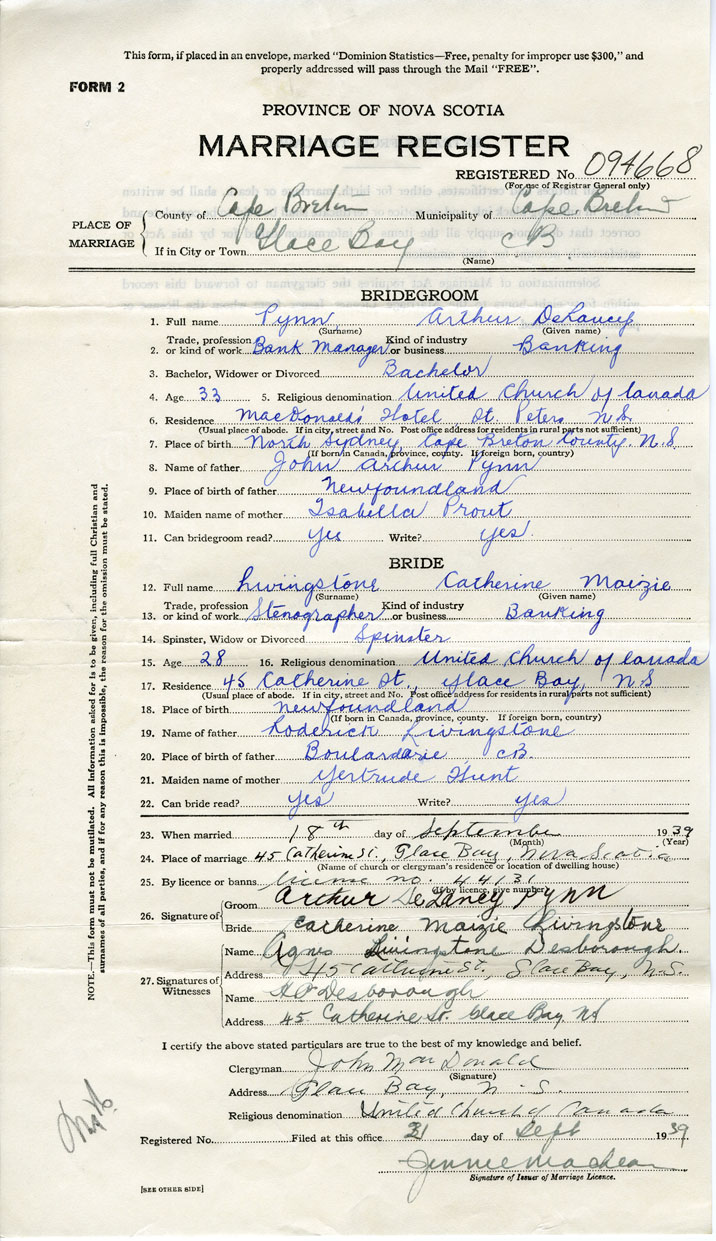 This form, if placed in an envelope, marked "Dominion Statistics—Free, penalty for improper use $300," and
properly addressed will pass through the Mail "FREE".
FORM 2
PROVINCE OF NOVA SCOTIA
MARRIAGE REGISTER
REGISTERED No. 094668
(For use of Registrar General only)
PLACE OF MARRIAGE
County of Cape Breton Municipality of Cape Breton
If in City or Town Glace Bay CB
(Name)
BRIDEGROOM
1. Full name Pynn Arthur DeLancey
(Surname) (Given name)
2. Trade, profession or kind of work Bank Manager Kind of industry or business Banking
3. Bachelor, Widower or Divorced Bachelor
4. Age 33 5. Religious denomination United Church of Canada
6. Residence MacDonald's Hotel, St. Peters N.S.
(Usual place of abode. If in city, street and No. Post office address for residents in rural parts not sufficient)
7. Place of birth North Sydney Cape Breton County N.S.
(If born in Canada, province, county. If foreign born, country)
8. Name of father John Arthur Pynn
9. Place of birth of father Newfoundland
10. Maiden name of mother Isabella Prout
11. Can bridegroom read? Yes Write? Yes.
BRIDE
12. Full name Livingstone Catherine Maizie
(Surname) (Given name)
13. Trade, profession or kind of work Stenographer Kind of industry or business Banking
14. Spinster, Widow or Divorced Spinster
15. Age 28 16. Religious denomination United Church of Canada
17. Residence 45 Catherine St., Glace Bay, N.S
(Usual place of abode. If in city, street and No. Post office address for residents in rural parts not sufficient)
18. Place of birth Newfoundland
(If born in Canada, province, county. If foreign born, country)
19. Name of father Roderick Livingstone
20. Place of birth of father Boulardarie CB.
21. Maiden name of mother Gertrude Hunt
22. Can bride read? Yes Write? Yes
23. When married 18th day of September 1939
(Month) (Year)
24. Place of marriage 45 Catherine St., Glace Bay, Nova Scotia
(Name of church or clergyman's residence or location of dwelling house)
25. By licence or banns license no. 44131
(If by licence, give number)
26. Signature of
Groom Arthur DeLancey Pynn
Bride Catherine Maizie Livingstone
27. Signatures of Witnesses
Name Agnes Livingstone Desborough.
Address 45 Catherine St., Glace Bay, N.S.
Name Desborough
Address 45 Catherine St. Glace Bay NS
I certify the above stated particulars are true to the best of my knowledge and belief.
Clergyman John MacDonald
(Signature)
Address Glace Bay, N.S.
Religious denomination United Church of Canada
Registered No. Filed at this office 21 day of Sept 1939
Jennie MacLean
Signature of Issuer of Marriage Licence.
[SEE OTHER SIDE]
NOTE.—This form must not be mutilated. All Information asked for is to be given, including full Christian and
surnames of all parties, and if for any reason this is impossible, the reason for the omission must be stated.